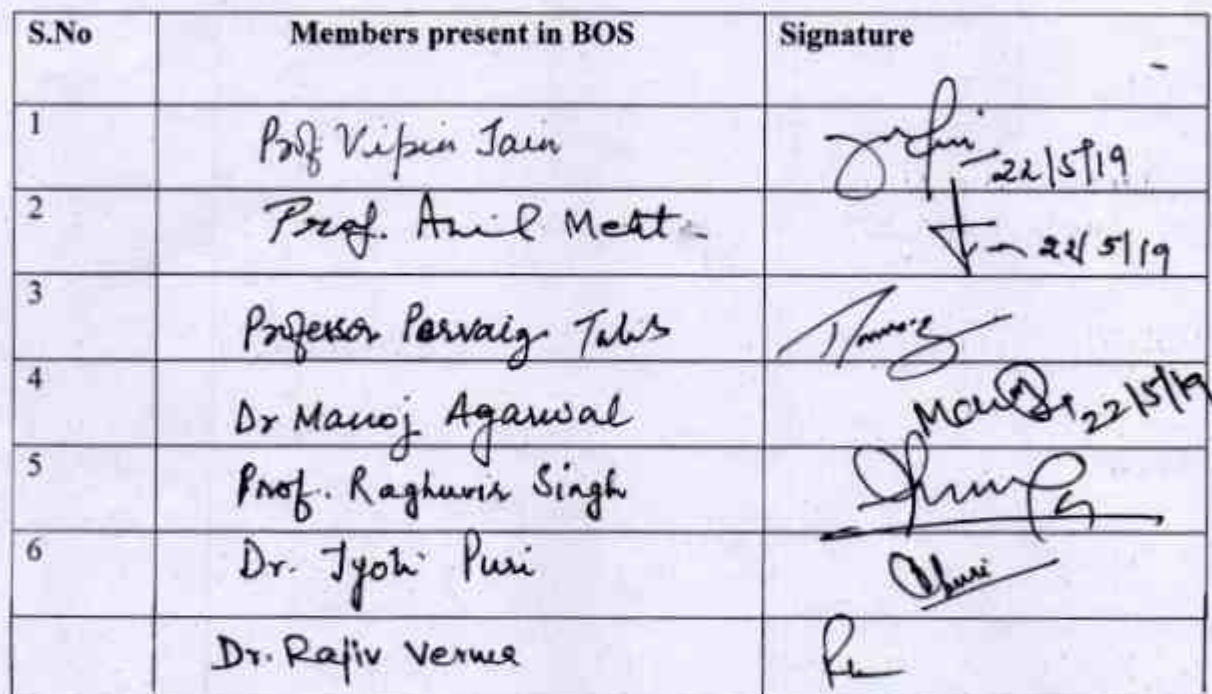 S.No Members present in BOS Signature
1 Prof Vipin Jain 22/5/19
2 Prof. Anil Meht 22/5/19
3 Professor Pervaiz
4 Dr Manoj Agarwal 22/5/19
5 Prof. Raghuvir Singh
6 Dr. Jyoti Puri
Dr. Rajiv Verma